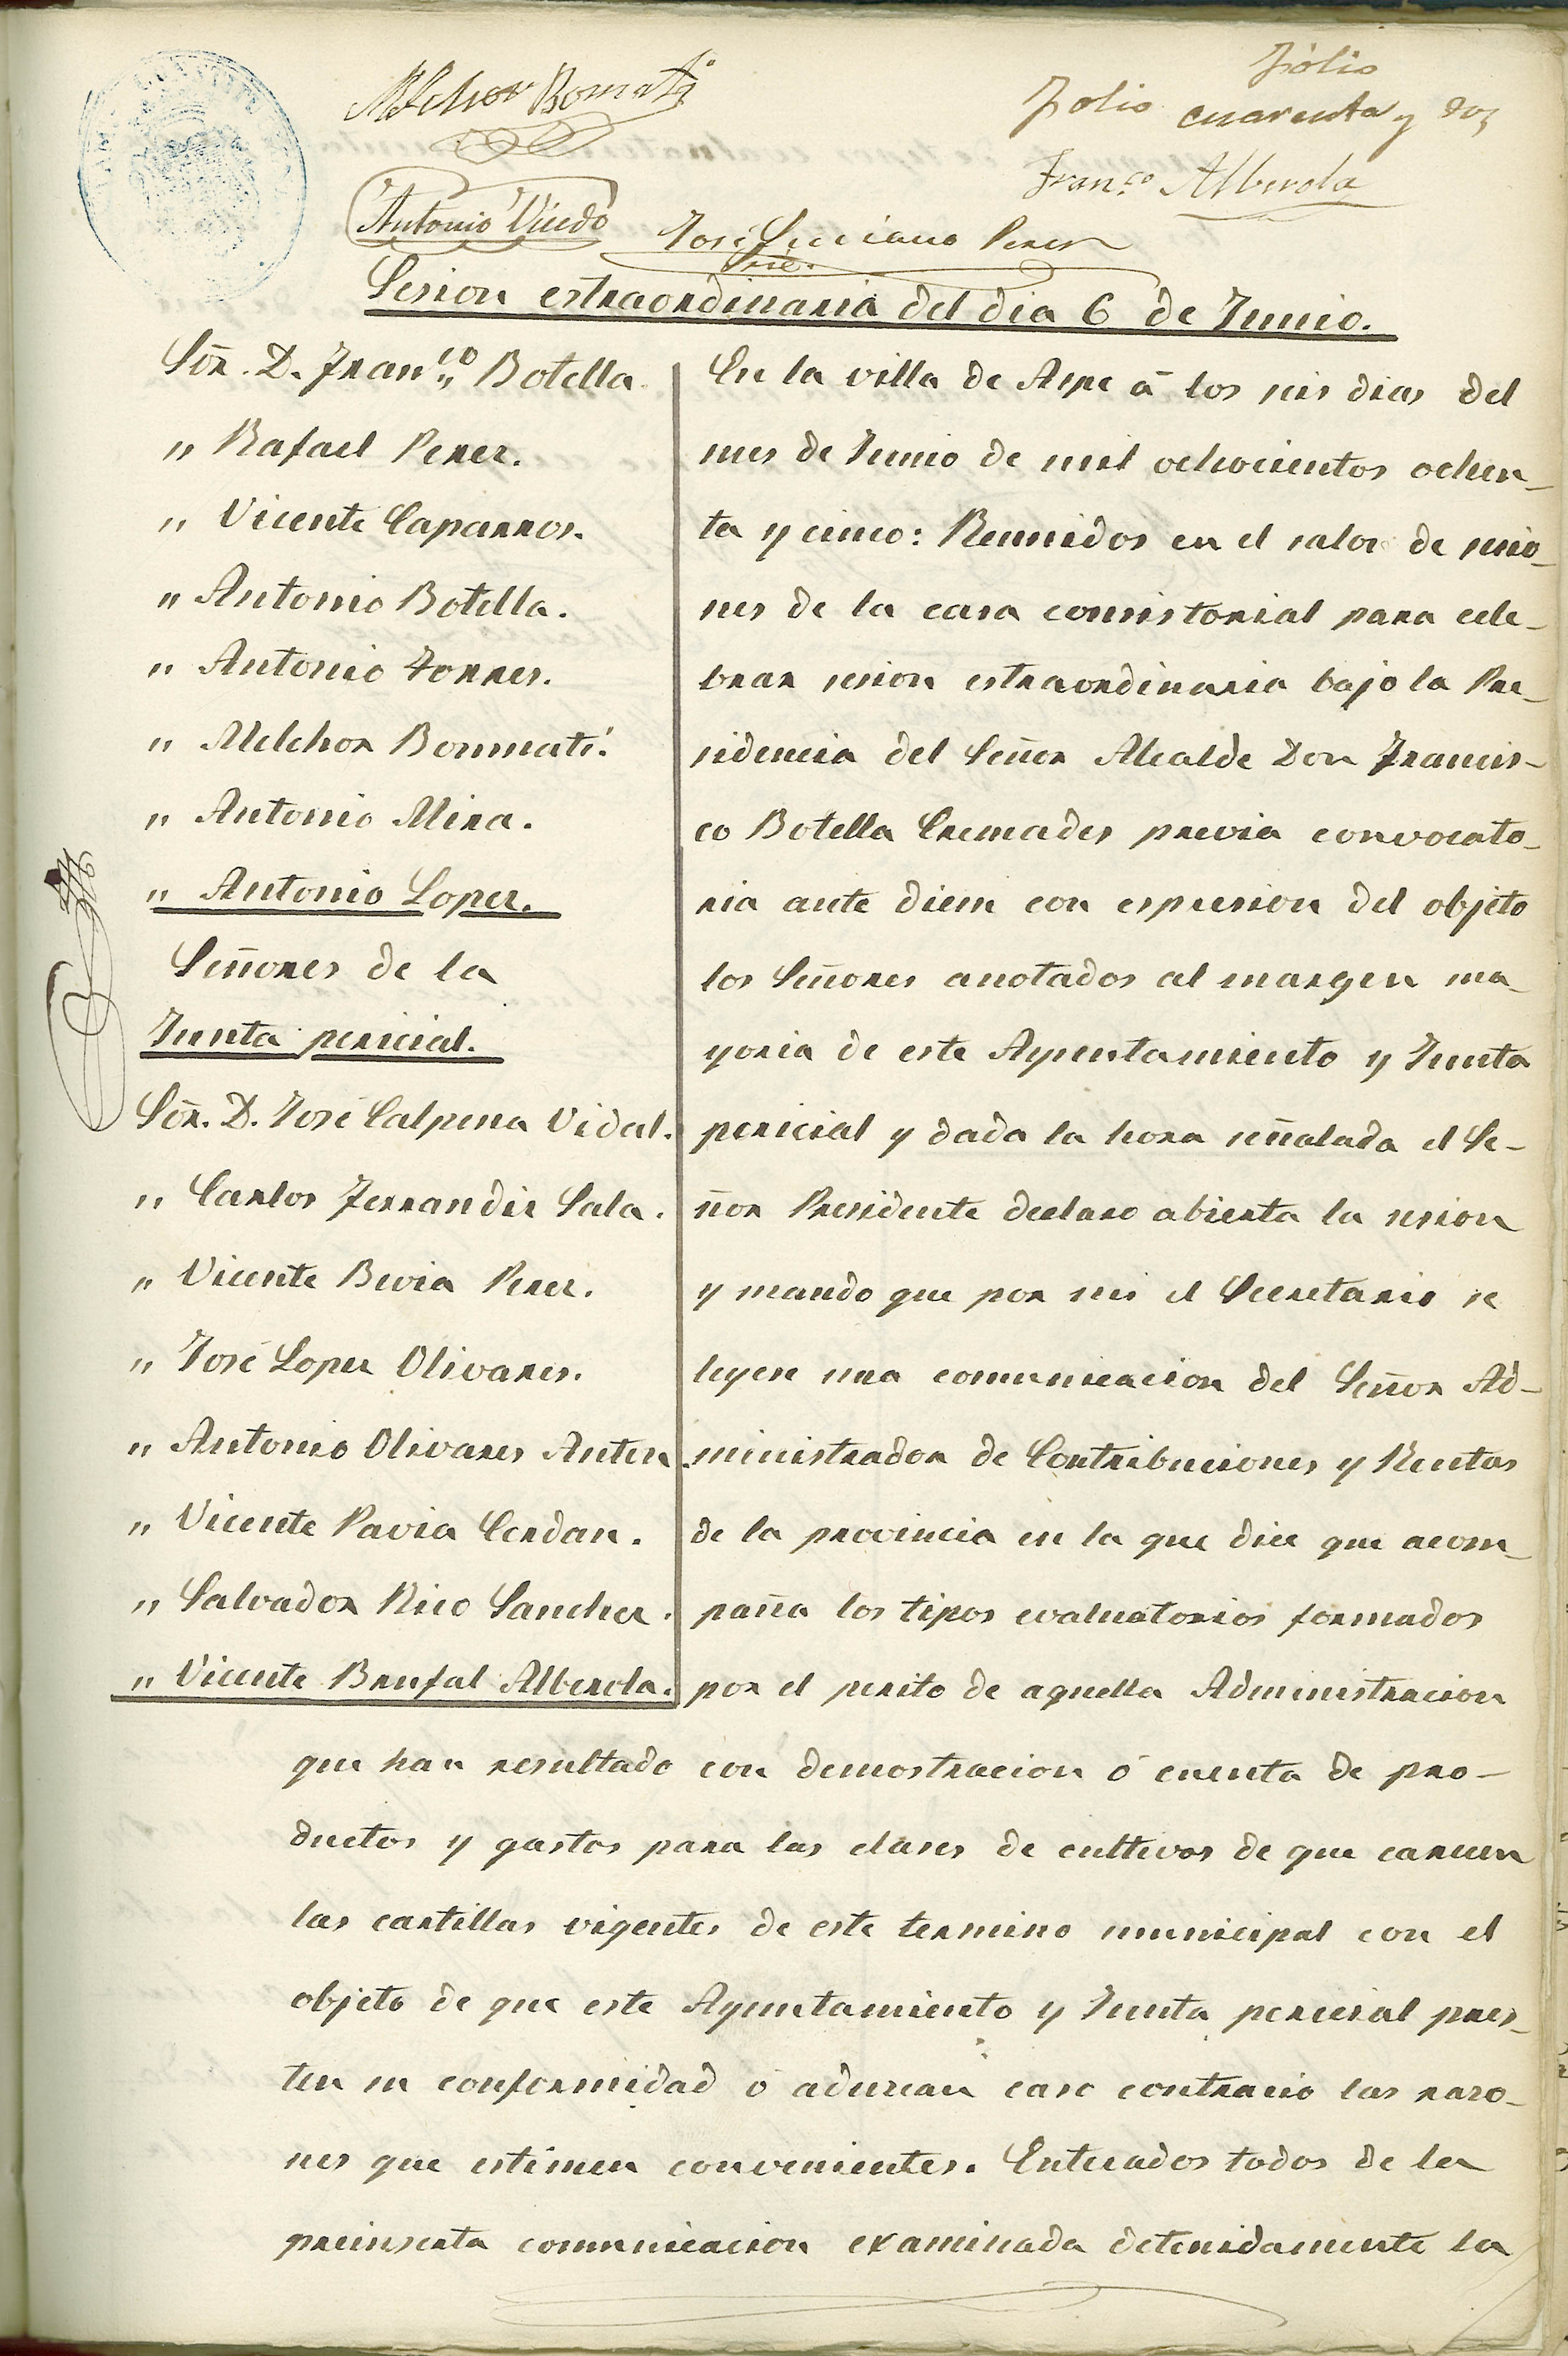 Folio
Melchor Bomati
Folio cuarenta y dos
Fran.co Alberola
Antonio Vicedo
José Luciano Perez
Srio.
Sesion estraordinaria del dia 6 de Junio.
Sōr. D. Fran.co Botella
" Rafael Perez.
" Vicente Caparros.
" Antonio Botella.
" Antonio Torres.
" Melchor Bommatí.
" Antonio Mira.
" Antonio Lopez.
Señores de la
Junta pericial.
Sōr. D. José Calpena Vidal.
" Carlos Ferrandiz Sala.
" Vicente Bevia Perez.
" José Lopez Olivares.
" Antonio Olivares Anton.
" Vicente Pavia Cerdan.
" Salvador Rico Sanchez.
" Vicente Brufal Alberola.
En la villa de Aspe á los seis dias del
mes de Junio de mil ochocientos ochen-
ta y cinco: Reunidos en el salon de sesio-
nes de la casa consistorial para cele-
brar sesion estraordinaria bajo la Pre-
sidencia del Señor Alcalde Don Francis-
co Botella Cremades previa convocato-
ria ante diem con espresion del objeto
los Señores anotados al margen ma-
yoria de este Ayuntamiento y Junta
pericial y dada la hora señalada el Se-
ñor Presidente declaro abierta la sesion
y mando que por mi el Secretario se
leyese una comunicacion del Señor Ad-
ministrador de Contribuciones y Rentas
de la provincia en la que dice que acom-
paña los tipos evaluatorios formados
por el perito de aquella Administracion
que han resultado con demostracion ó cuenta de pro-
ductos y gastos para las clases de cultivos de que carecen
las cartillas vigentes de este termino municipal con el
objeto de que este Ayuntamiento y Junta pericial pres-
ten su conformidad ó aduzcan caso contrario las razo-
nes que estimen convenientes. Enterados todos de la
preinserta comunicacion examinada detenidamente la